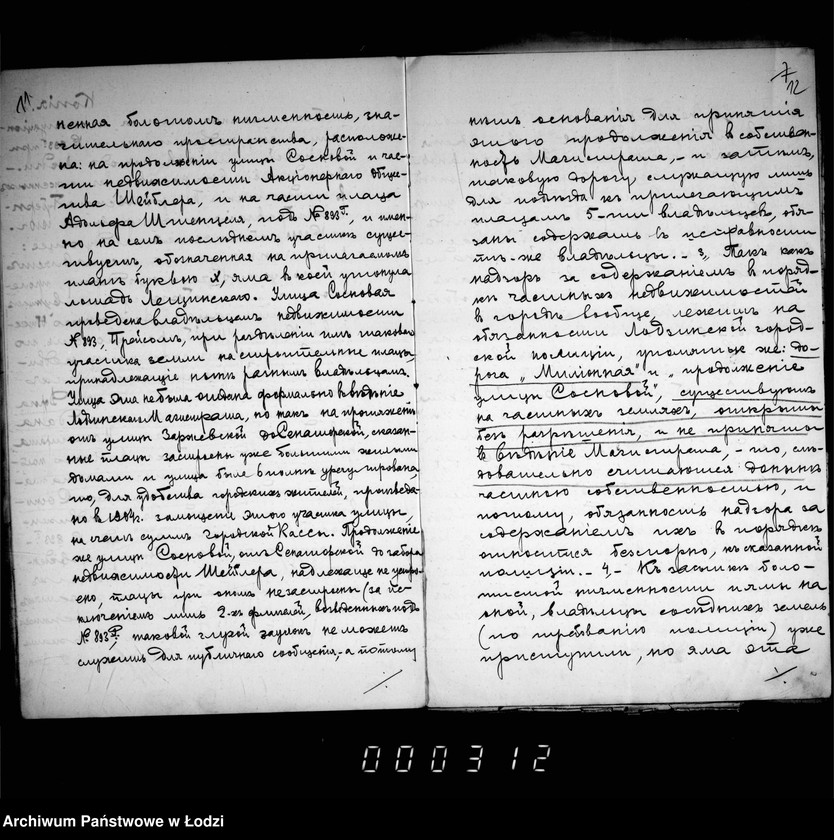 11
ненная болотомъ низменность, зна-
чительнаго пространства, расположе-
на: на продолженіи улицы Сосновой и час-
ти недвижимости Акціонернаго Обще-
ства Шейблера, и на части плаца
Адольфа Штенцеля, подъ № 893, и имен-
но на семъ послѣднемъ участкѣ сущес-
твуетъ, обозначенная на прилагаемомъ
планѣ буквою X, яма въ коей утонула
лошадь Лещинскаго. Улица Сосновая
проведена владѣльцемъ недвижимости
№ 893, Прейсомъ, при раздѣленіи имъ таковаго
участка земли на строительные плацы,
принадлежащіе нынѣ разнымъ владѣльцамъ.
Улица эта не была отдана формально въ вѣдѣніе
Лодзинскаго Магистрата, но такъ на протяженіи
отъ улицы Заржевской до Сенаторской, сказан-
ные плацы застроены уже большими жилыми
домами и улица была вполнѣ урегулирована,
то, для удобства городскихъ жителей, произведе-
но въ 1904 г. замощеніе этого участка улицы,
на счетъ суммъ городской Кассы. Продолженіе
же улицы Сосновой, отъ Сенаторской до забора
недвижимости Шейблера, надлежаще не устро-
ено, плацы при ономъ не застроены (за ис-
ключеніемъ лишь 2-хъ флигелей, возведенныхъ подъ
№ 893), таковой глухой заулокъ не можетъ
служить для публичнаго сообщенія, а потому
./.
12
нымъ основанія для принятія
этого продолженія въ собствен-
ность Магистрата, – и затѣмъ,
таковую дорогу, служащую лишь
для подъѣзда къ прилегающимъ
плацамъ 5-ти владѣльцевъ, обя-
заны содержать въ исправности
тѣ-же владѣльцы. – 3, Такъ какъ
надзоръ за содержаніемъ въ поряд-
кѣ частныхъ недвижимостей
въ городѣ вообще, лежитъ на
обязанности Лодзинской город-
ской полиціи, упомянутыя же: до-
рога „Миліонная" и „продолженіе
улицы Сосновой", существуютъ
на частныхъ земляхъ, открыты
безъ разрѣшенія, и не приняты
въ вѣдѣніе Магистрата, – то, слѣ-
довательно считаются донынѣ
частною собственностью, и
потому, обязанность надзора за
содержаніемъ ихъ въ порядкѣ
относится безспорно, къ сказанной
полиціи. – 4, – Къ засыпкѣ боло-
тистой низменности и ямы на
оной, владѣльцы сосѣднихъ земель
(по требованію полиціи) уже
приступили, но яма эта
./.
000312
Archiwum Państwowe w Łodzi